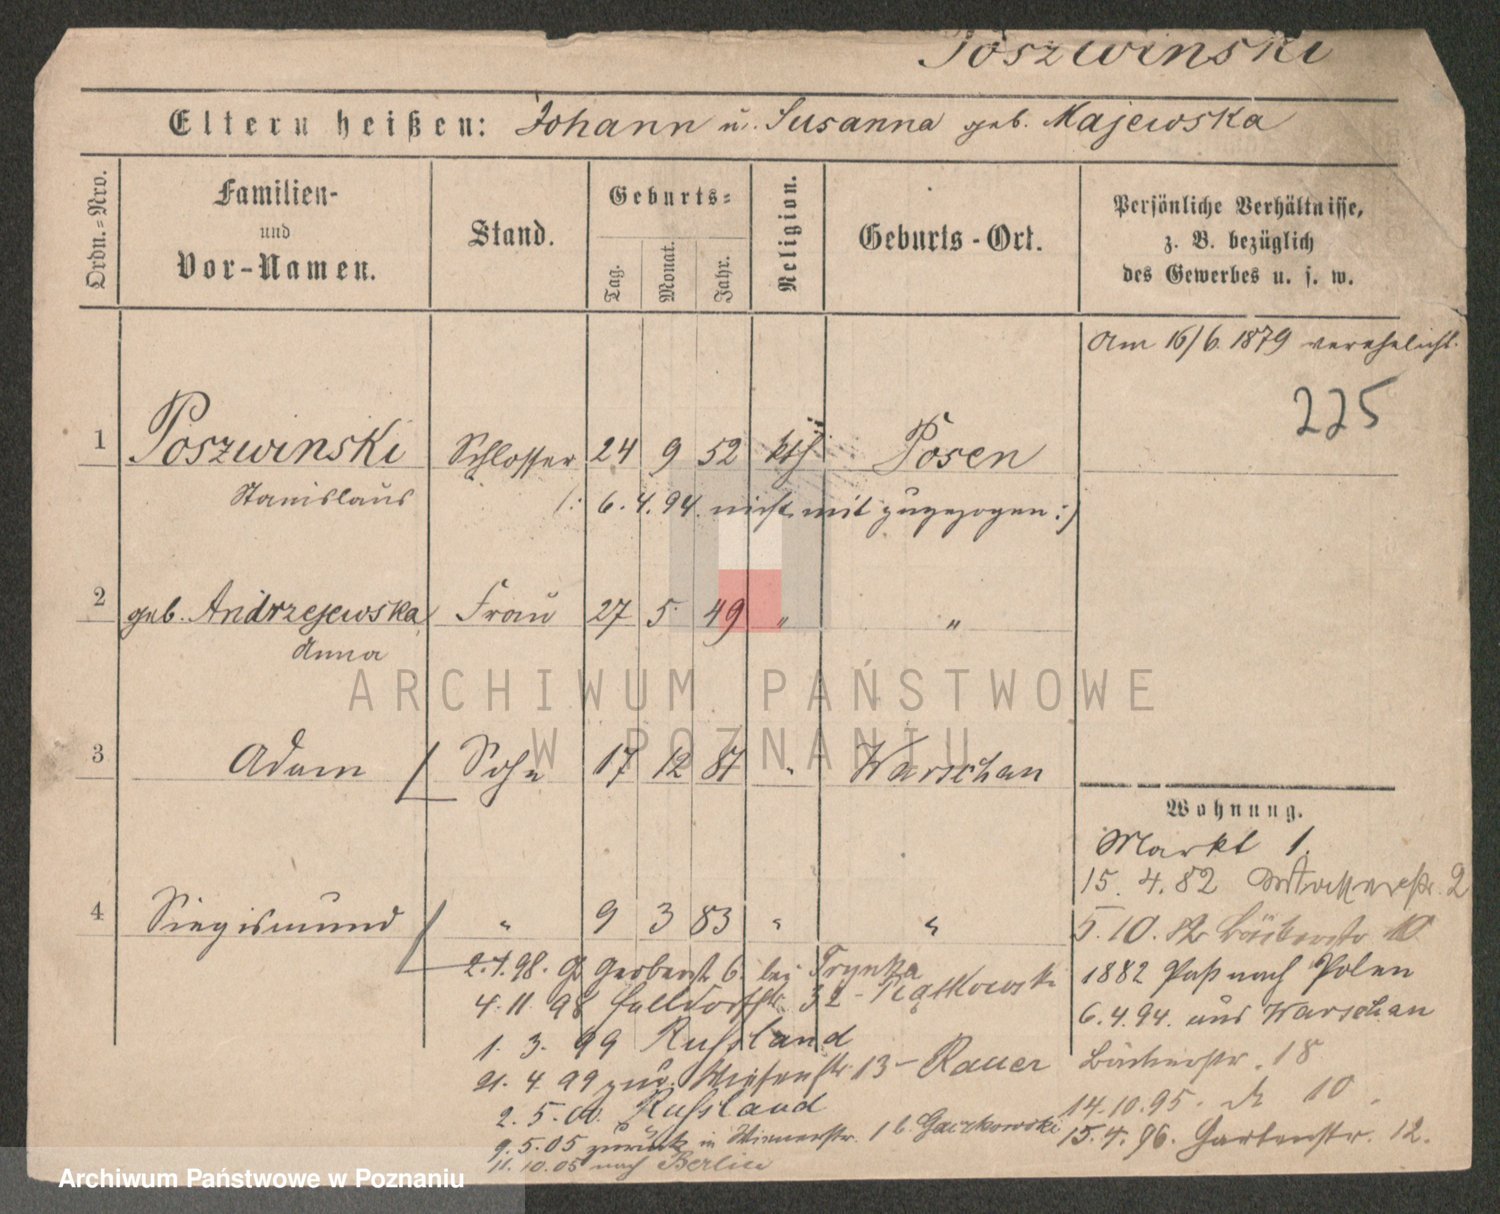 Poszwinski
Eltern heißen: Johann u. Susanna geb. Majewska
Ordn.=Nro.
Familien-
und
Vor-Namen.
Stand.
Geburts=
Tag.
Monat.
Jahr.
Religion.
Geburts-Ort.
Persönliche Verhältnisse,
z. B. bezüglich
des Gewerbes u. s. w.
Am 16/6. 1879 verehelicht.
225
1 Poszwinski Schlosser 24 9 52 kth. Posen
Stanislaus
/: 6.4.94. nicht mit zugezogen :/
2 geb. Andrzejewska Frau 27 5. 49 " "
Anna
3 Adam Sohn 17 12 81 " Warschau
4 Siegismund " 9 3 83 " "
Wohnung.
Markt 1.
15. 4. 82 2
5. 10. 82 Bäckerstr 10
1882 Paß nach Polen
6.4.94. aus Warschau
Bäckerstr. 18
14.10.95. 10
15.4.96. Gartenstr. 12.
2.4.98. Gr Gerberst 6. bei Trynka
4.11.98 Halldorfstr. 32 - Piątkowski
1. 3. 99 Russland
21. 4. 99 zur. Wiesenstr. 13 - Rauer
2. 5. 00. Russland
9.5.05 zurück in Wienerstr. 16 Gaczkowski
11.10.05 nach Berlin
ARCHIWUM PAŃSTWOWE
W POZNANIU
Archiwum Państwowe w Poznaniu